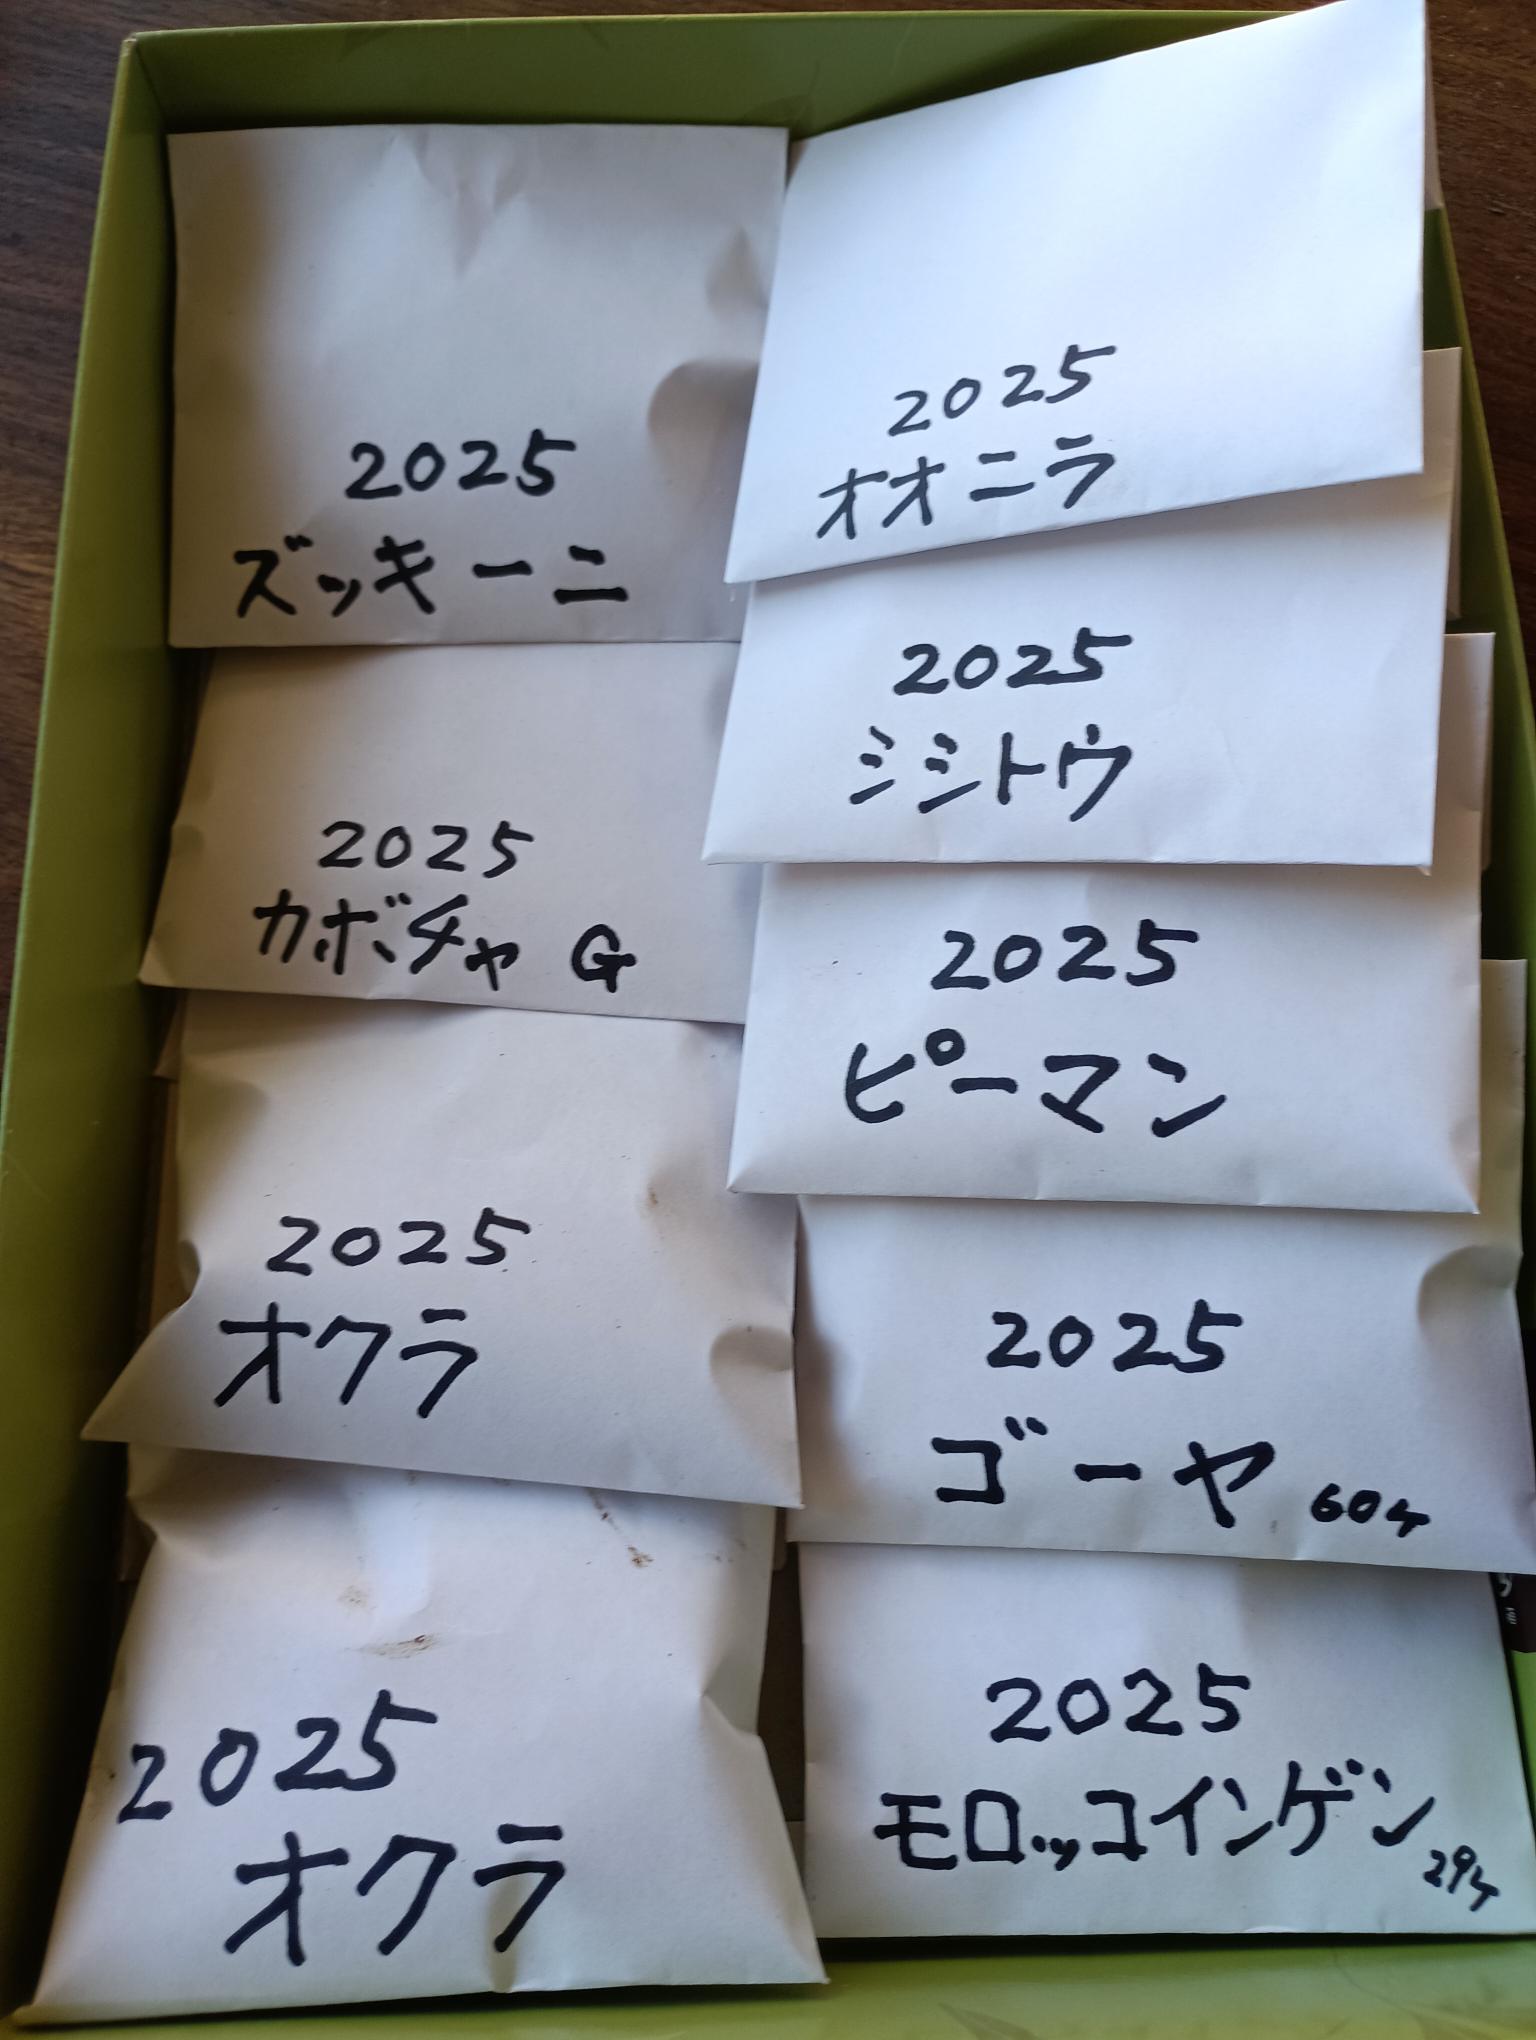 2025
ズッキーニ
2025
カボチャ G
2025
オクラ
2025
オクラ
2025
オオニラ
2025
シシトウ
2025
ピーマン
2025
ゴーヤ 60ケ
2025
モロッコインゲン 29ケ